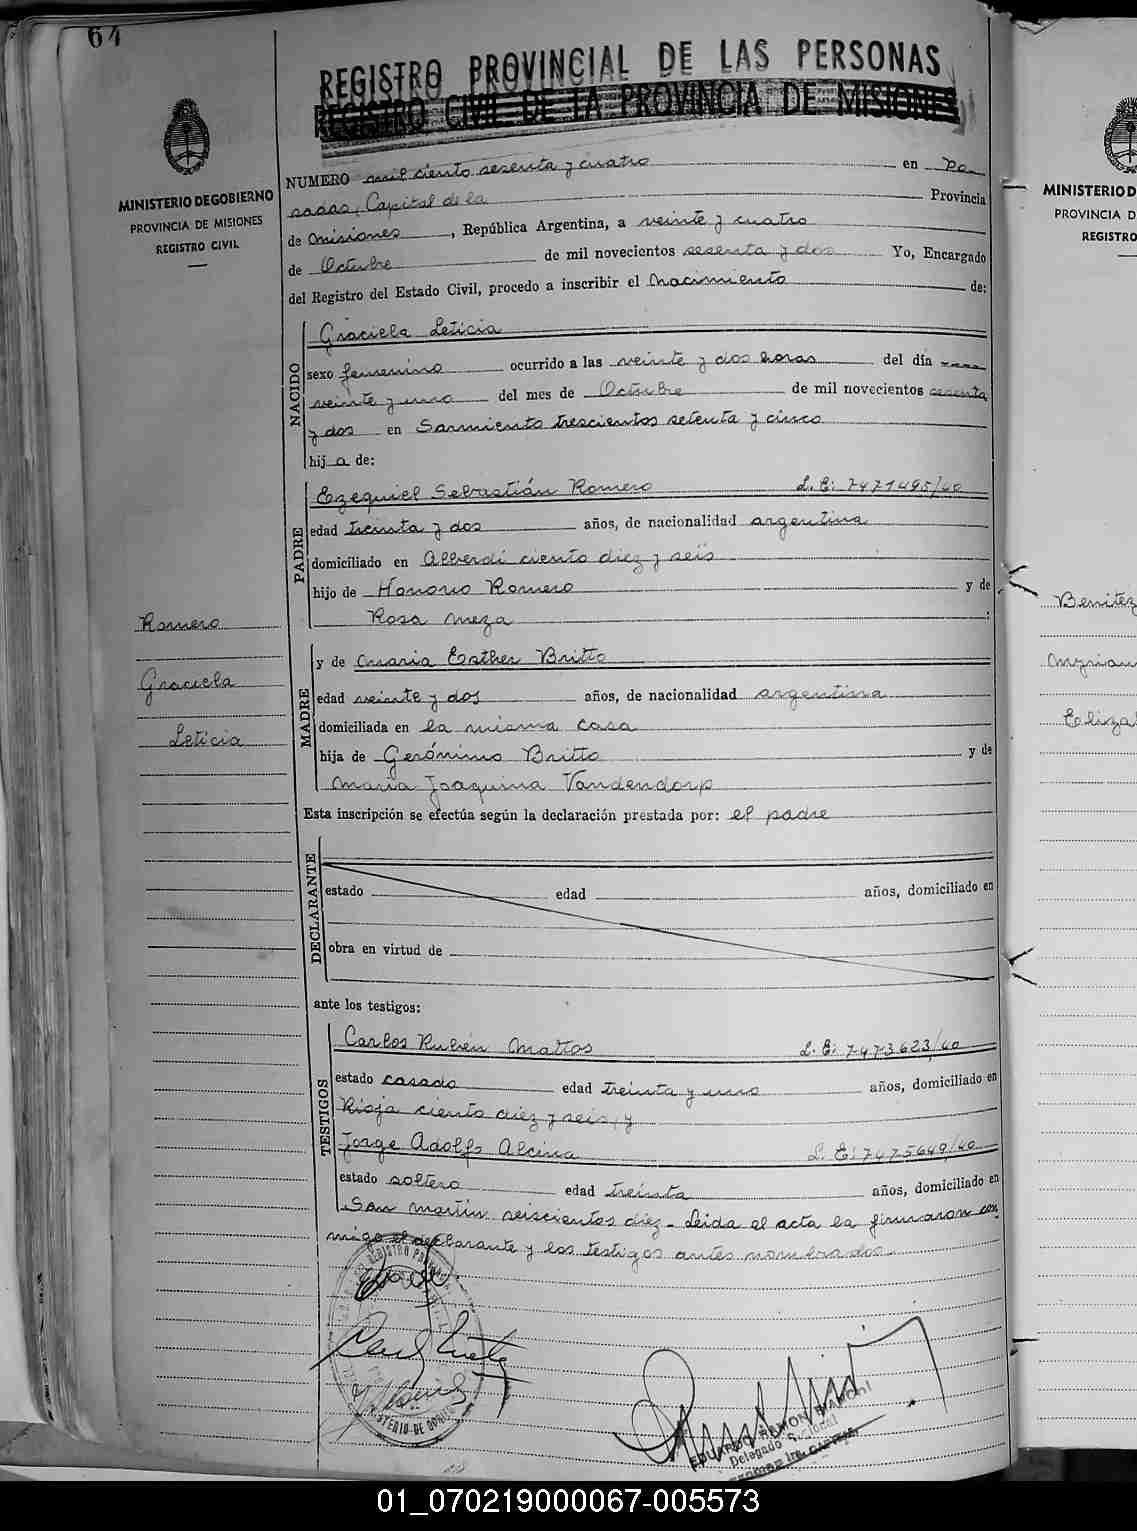 64
REGISTRO PROVINCIAL DE LAS PERSONAS
REGISTRO CIVIL DE LA PROVINCIA DE MISIONES
MINISTERIO DE GOBIERNO
PROVINCIA DE MISIONES
REGISTRO CIVIL
NUMERO mil ciento sesenta y cuatro en Po-
sadas, Capital de la Provincia
de Misiones, República Argentina, a veinte y cuatro
de Octubre de mil novecientos sesenta y dos Yo, Encargado
del Registro del Estado Civil, procedo a inscribir el Nacimiento de:
NACIDO
Graciela Leticia
sexo femenino ocurrido a las veinte y dos horas del día
veinte y uno del mes de Octubre de mil novecientos sesenta
y dos en Sarmiento trescientos setenta y cinco
hija de:
PADRE
Ezequiel Sebastián Romero L. E: 7471495/40
edad treinta y dos años, de nacionalidad argentina
domiciliado en Alberdi ciento diez y seis
hijo de Honorio Romero y de
Rosa Meza :
Romero
Graciela
Leticia
MADRE
y de Maria Esther Britto
edad veinte y dos años, de nacionalidad argentina
domiciliada en la misma casa
hija de Gerónimo Britto y de
Maria Joaquina Vandendorp
Esta inscripción se efectúa según la declaración prestada por: el padre
DECLARANTE
estado edad años, domiciliado en
obra en virtud de
ante los testigos:
TESTIGOS
Carlos Rubén Mattos L. E: 7473623/40
estado casado edad treinta y uno años, domiciliado en
Rioja ciento diez y seis, y
Jorge Adolfo Alcina L. E: 7475649/40
estado soltero edad treinta años, domiciliado en
San Martin seiscientos diez - Leida el acta la firmaron con-
migo el declarante y los testigos antes nombrados.
EDUARDO RAMON BIANCHI
Delegado Seccional
MINISTERIO D
PROVINCIA D
REGISTRO
Benitez
Myrian
Eliza
01_070219000067-005573